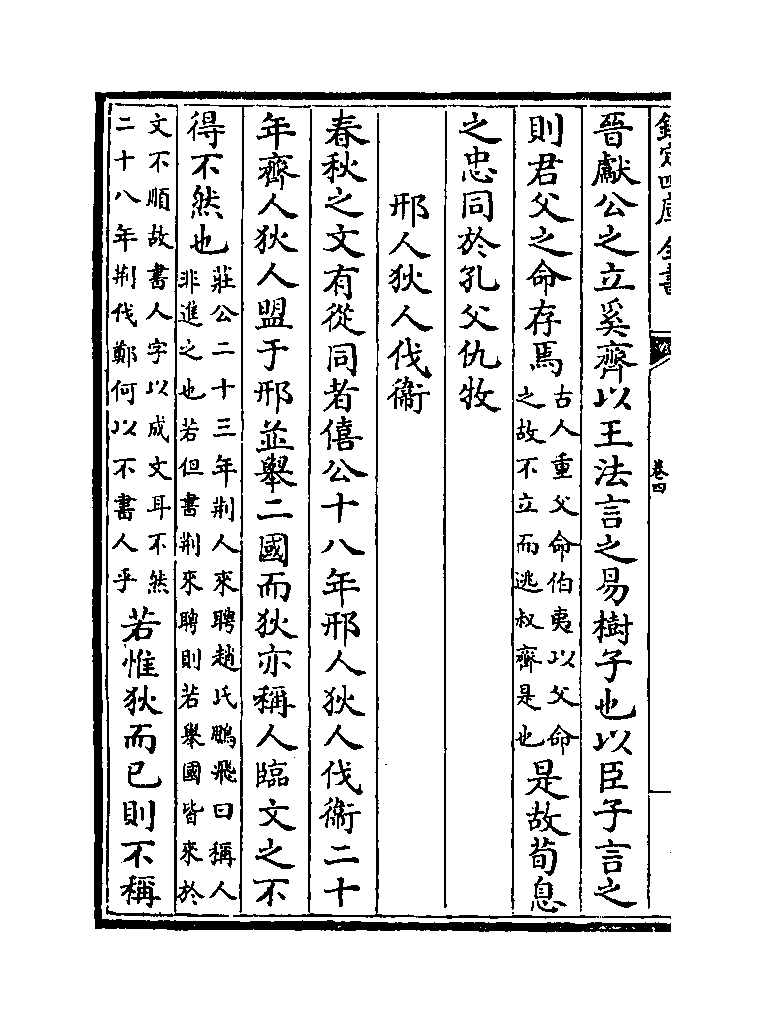 欽定四庫全書
卷四
晉獻公之立奚齊以王法言之易樹子也以臣子言之
則君父之命存焉古人重父命伯夷以父命
之故不立而逃叔齊是也是故荀息
之忠同於孔父仇牧
邢人狄人伐衞
春秋之文有從同者僖公十八年邢人狄人伐衞二十
年齊人狄人盟于邢並舉二國而狄亦稱人臨文之不
得不然也莊公二十三年荆人來聘趙氏鵬飛曰稱人
非進之也若但書荆來聘則若舉國皆來於
文不順故書人字以成文耳不然
二十八年荆伐鄭何以不書人乎若惟狄而已則不稱